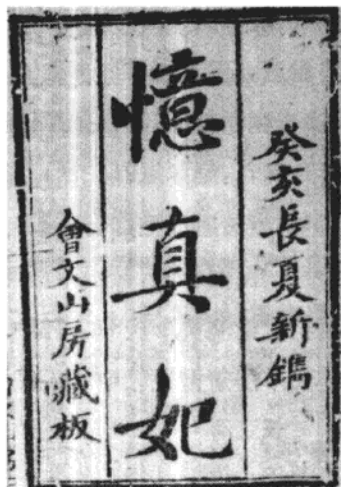 癸亥長夏新鐫
憶真妃
會文山房藏板